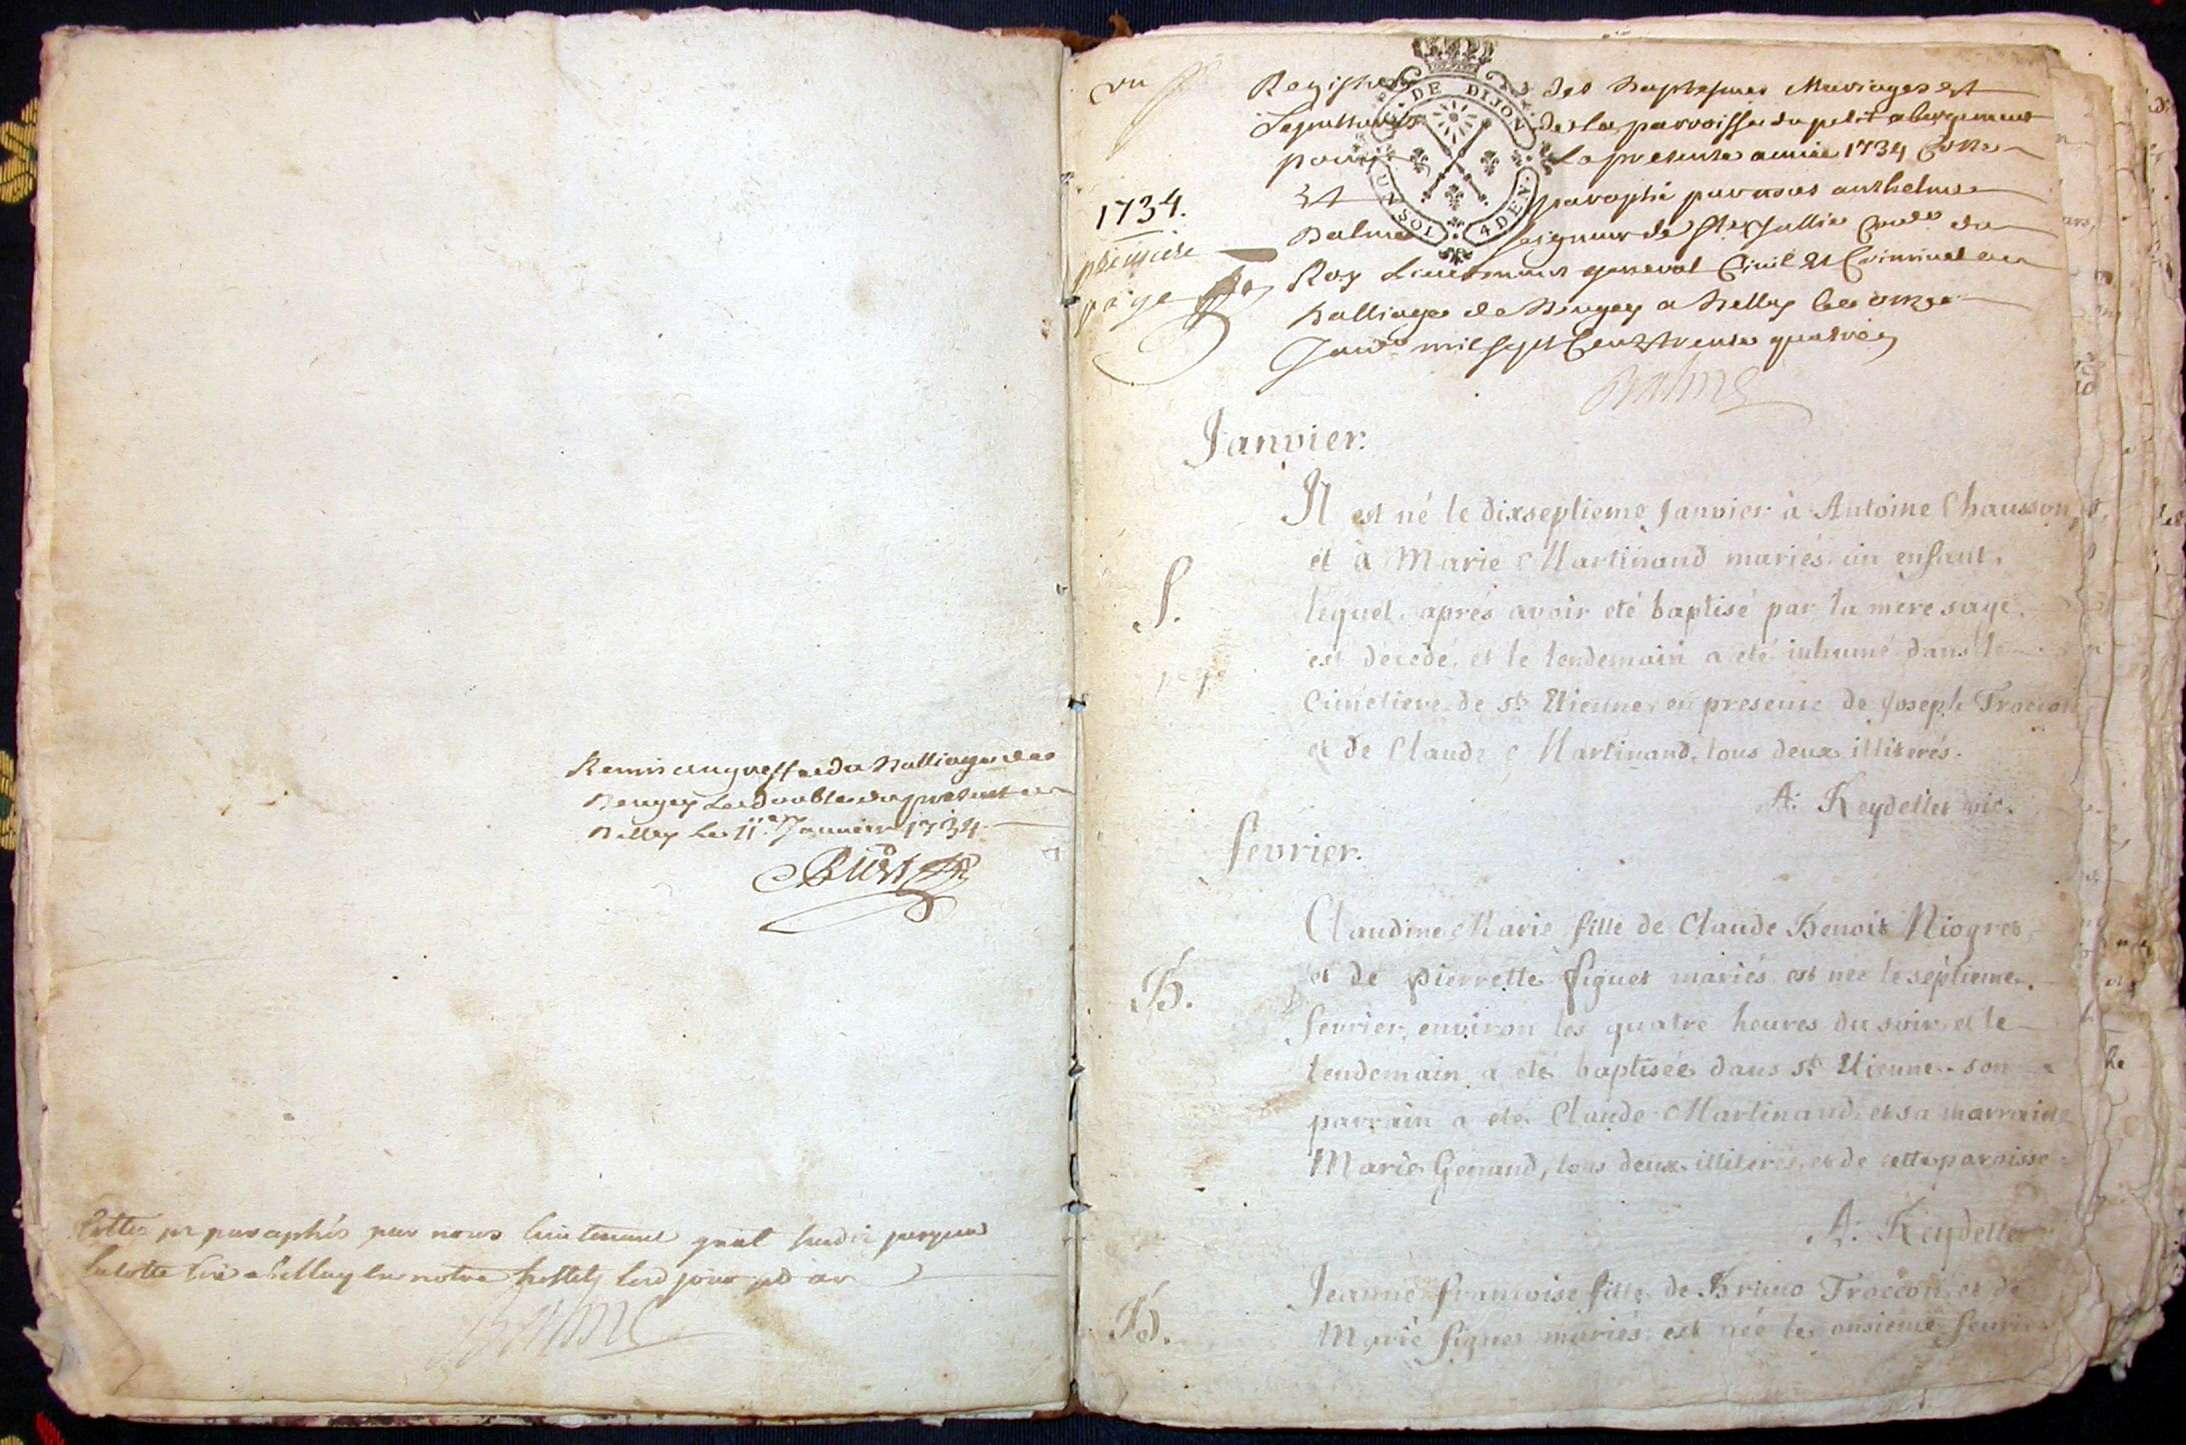 Remis au greffe du Balliage de
Beugey le double du present
Belley le 11e. Janvier 1734
par nous lieutenant
Balme
vu
1734.
premiere
page
Registre des Baptesmes Mariages Et
Sepultures de la parroisse du petit abergement
pour La presente année 1734 Cotté
Et paraphé par nous anthelme
Balme seigneur de Ste Jullie Conr. du
Roy Lieutenant general Civil Et Criminel au
Balliage de Beugey a Belley le onze
Janvr. mil sept Cent trente quatre
Balme
DE DIJON
4 DEN.
Janvier.
Il est né le dixseptieme Janvier à Antoine Chausson,
et à Marie Martinand mariés un enfant,
S.
lequel, aprés avoir eté baptisé par la mere sage,
est decedé, et le lendemain a eté inhumé dans le
Cimetiere de St Etienne, en presence de Joseph Troccon
et de Claude Martinand, tous deux illiterés.
A. Reydellet vic.
fevrier.
Claudine Marie fille de Claude Benoit Niogret
et de pierrette figuet mariés est née le septieme
B.
fevrier, environ les quatre heures du soir, et le
lendemain a eté baptisée dans St Etienne. son
parrain a eté Claude Martinand, et sa marraine
Marie Genand, tous deux illiterés, et de cette paroisse.
A. Reydellet
Jeanne francoise fille de Bruno Troccon, et de
B.
Marie figuet mariés, est née le onsieme fevrier